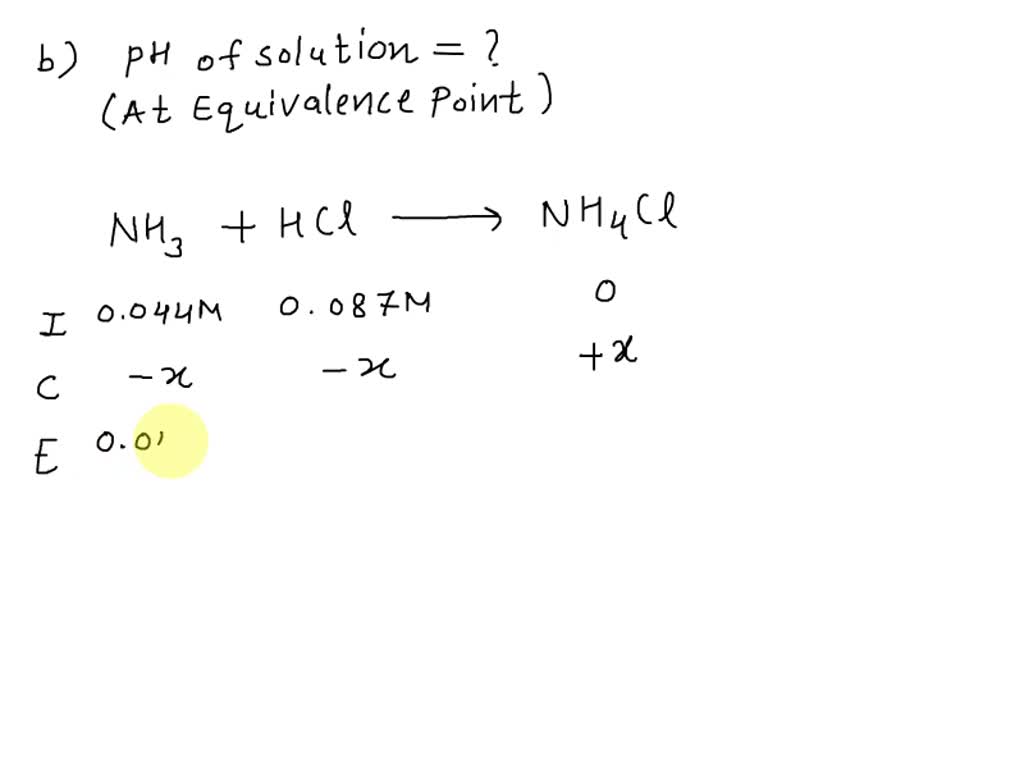 b) pH of solution = ?
(At Equivalence Point)
NH₃ + HCl ⟶ NH₄Cl
I 0.044M 0.087M 0
C -x -x +x
E 0.0